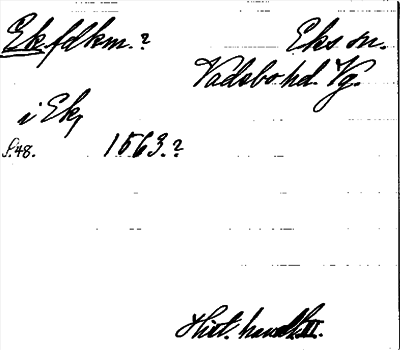 Ek fdkm.? Eks sn.
Vadsbo hd. Vg.
i Ek,
S.48. 1563.?
Hist. handl. III.